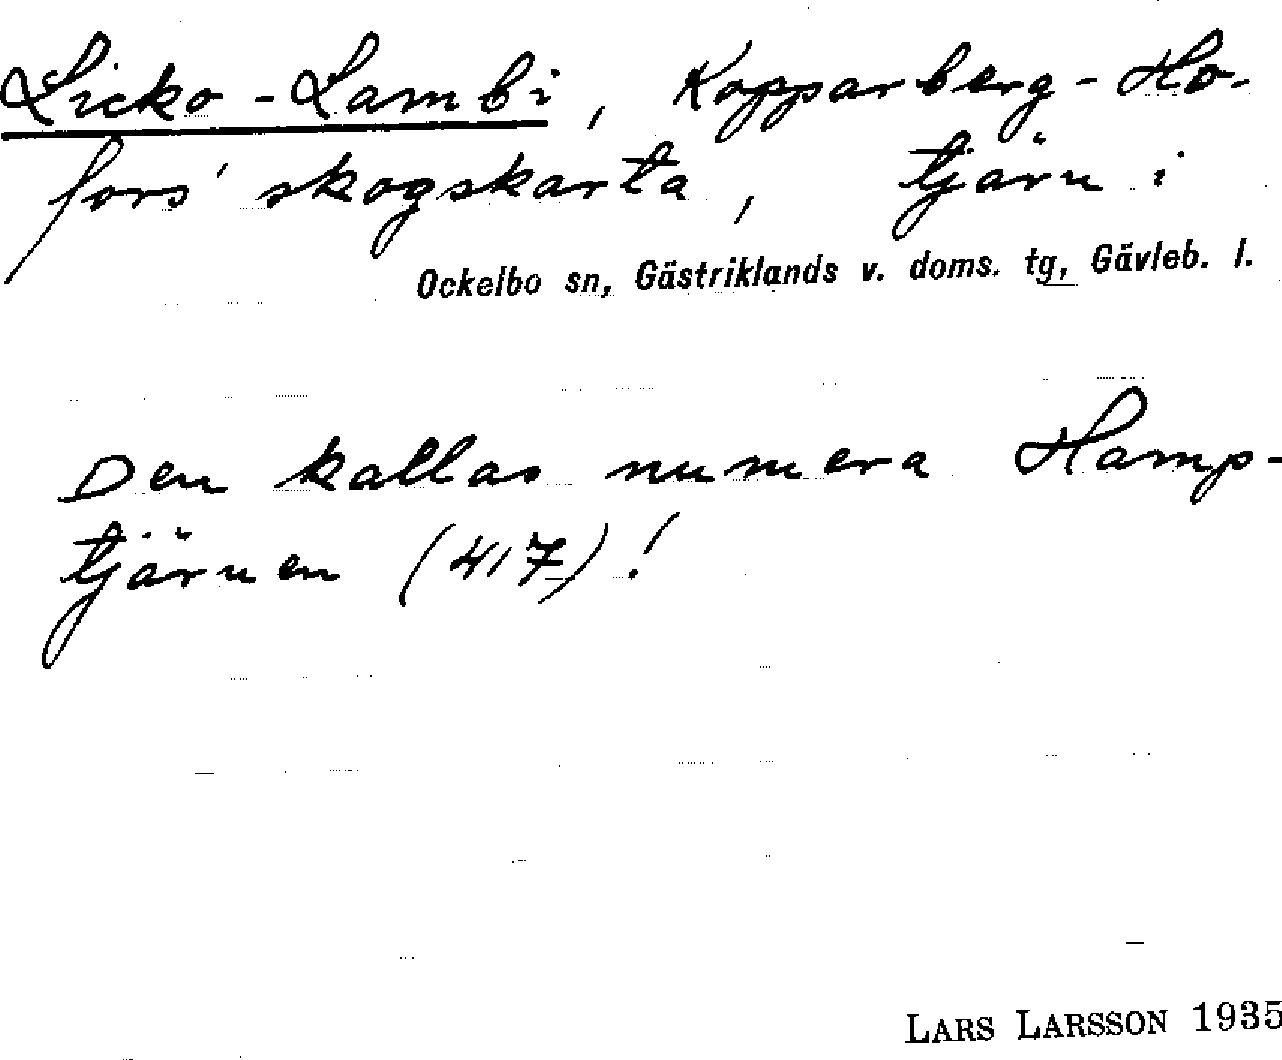 Licko-Lambi, Kopparberg-Ho-
fors' skogskarta, tjärn i
Ockelbo sn, Gästriklands v. doms. tg, Gävleb. l.
Den kallas numera Hamp-
tjärnen (417)!
LARS LARSSON 1935